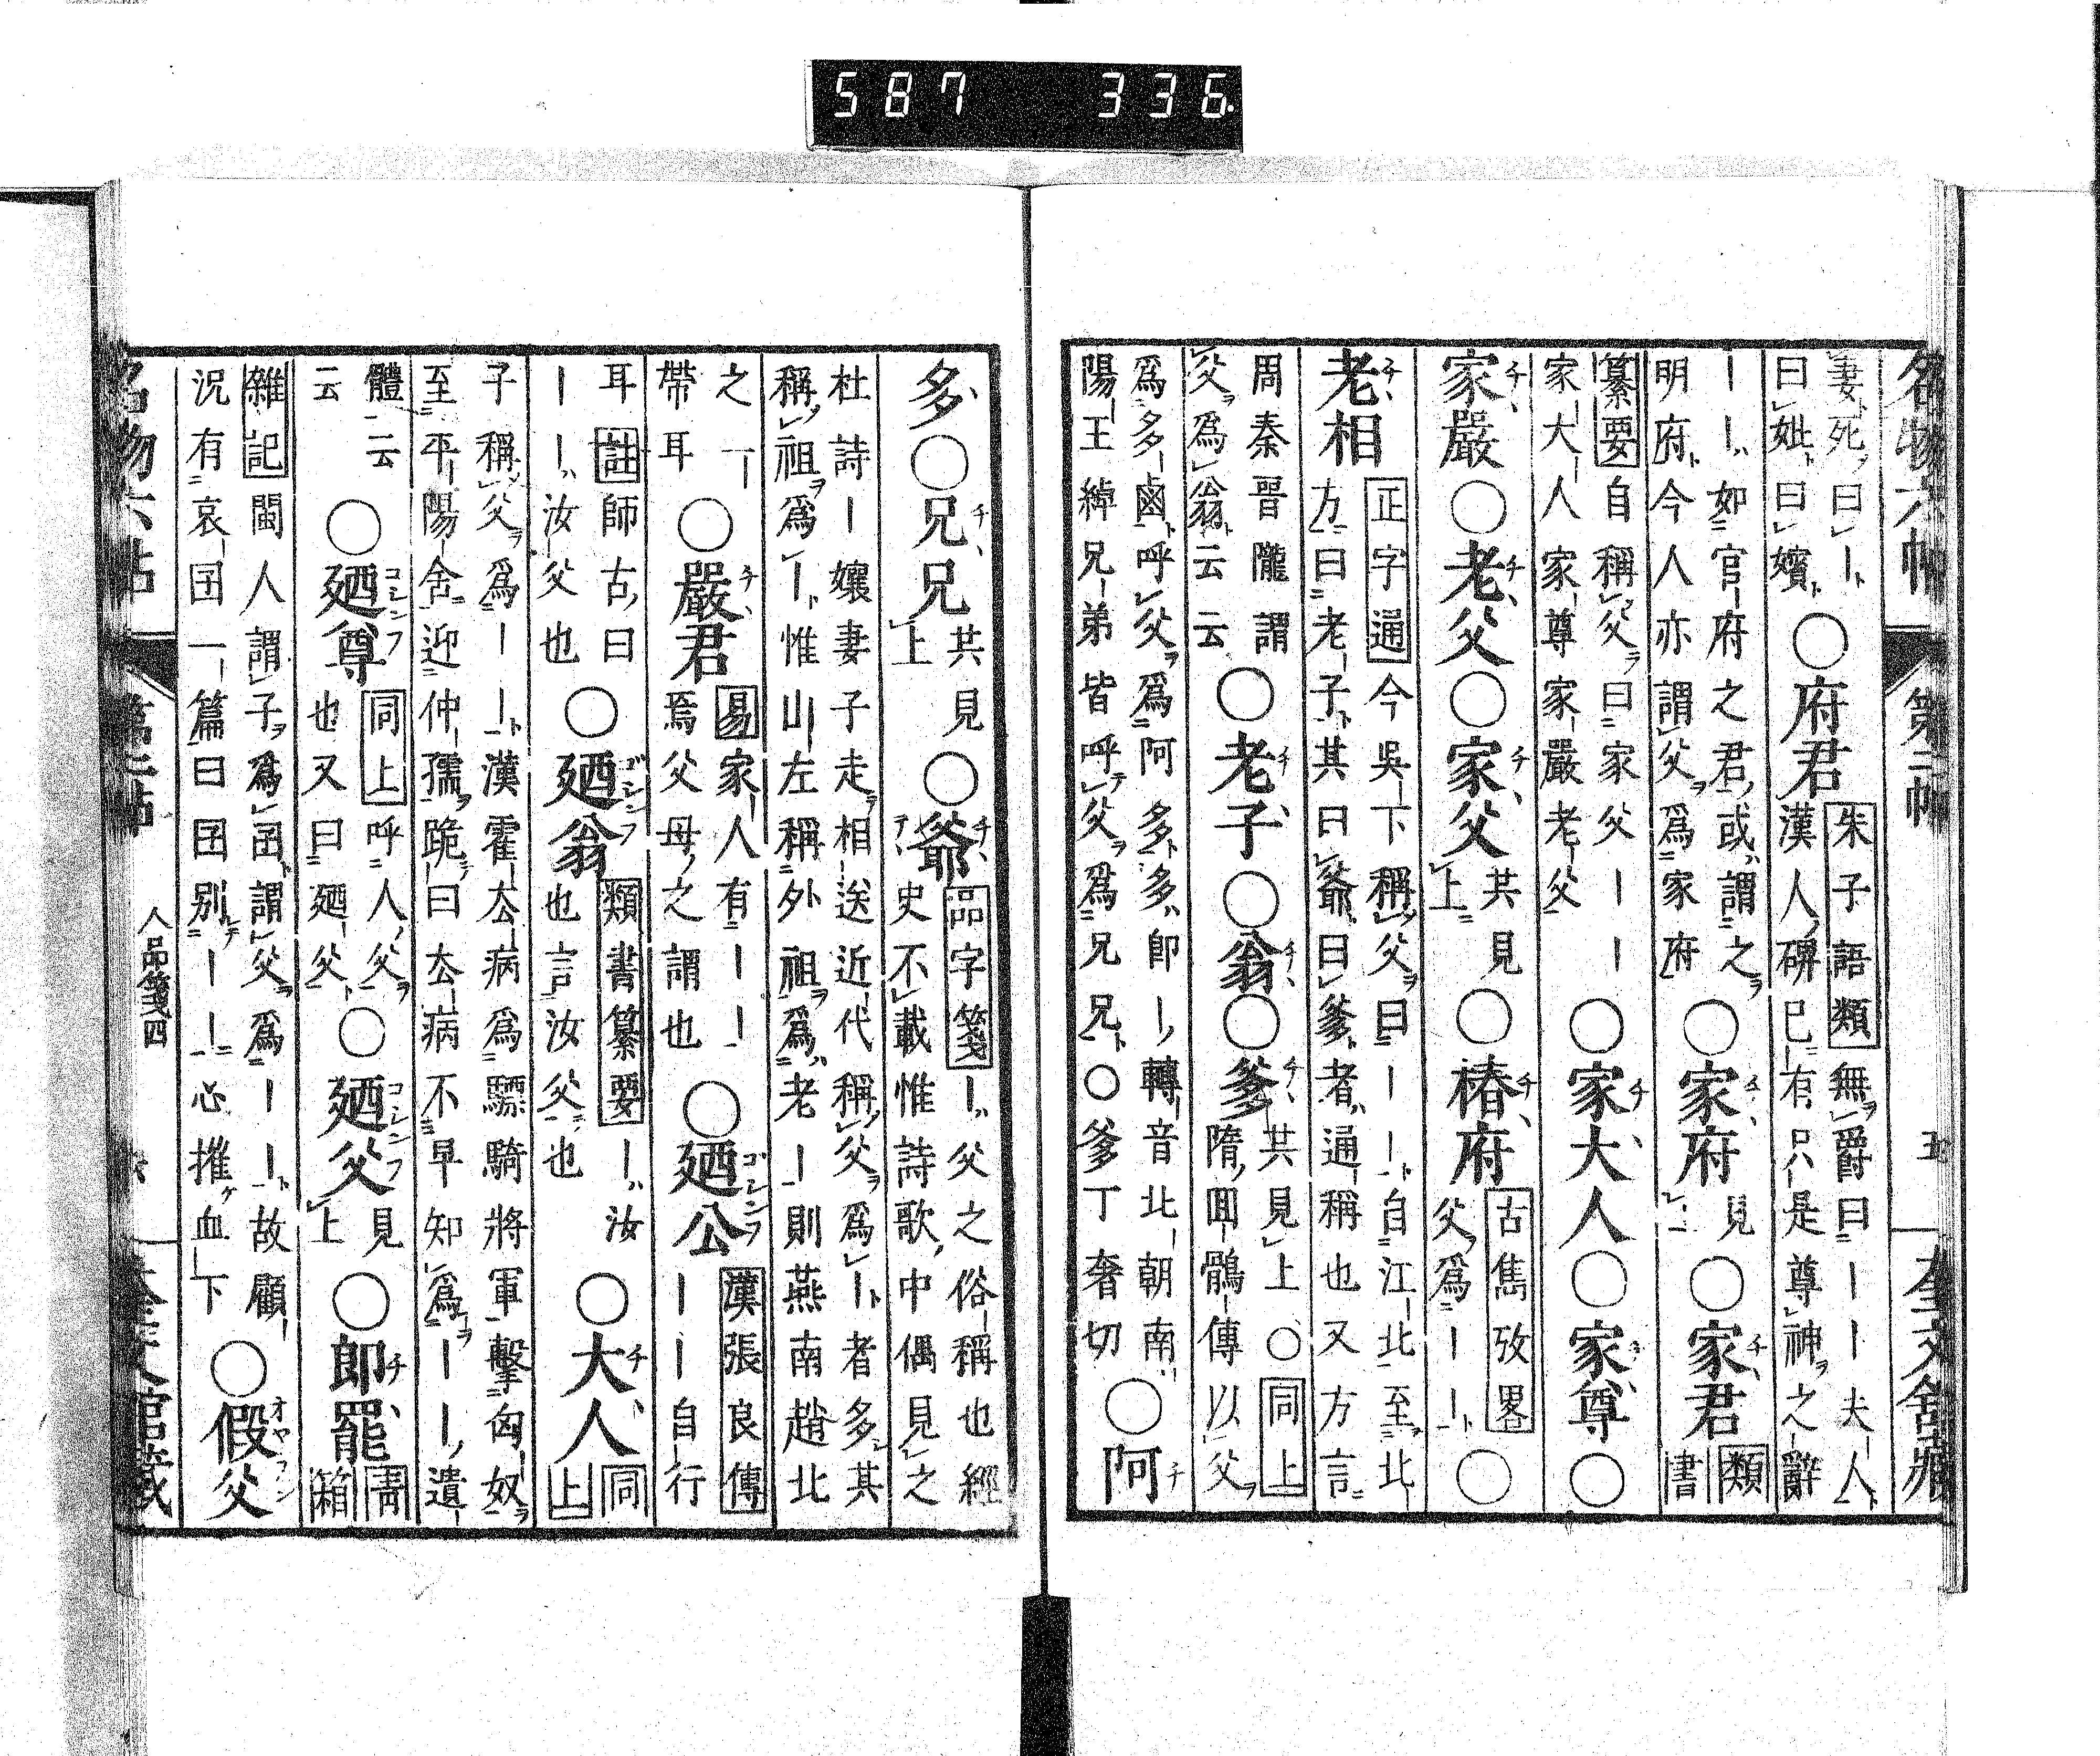 587 336
名物六帖 第二帖 五 奎文舍藏
妻死曰｜
曰妣曰嬪
○府君
朱子語類無爵曰｜｜夫人
漢人碑已有只是尊神之辭
｜｜如官府之君或謂之
明府今人亦謂父爲家府
○家府見上
○家君類書
纂要自稱父曰家父｜｜
家大人家尊家嚴老父
○家大人○家尊○
家嚴○老父○家父共見上
○椿府古雋攷畧
父爲｜｜○
老相正字通今吳下稱父曰｜｜自江北至北
方曰老子其曰爺曰爹者通稱也又方言
周秦晉隴謂
父爲翁云云
○老子○翁○爹共見上○同上
隋回鶻傳以父
爲多鹵呼父爲阿多多卽｜轉音北朝南
陽王綽兄弟皆呼父爲兄兄○爹丁奢切
○阿
多○兄兄共見上
○爺品字箋｜父之俗稱也經
史不載惟詩歌中偶見之
杜詩｜孃妻子走相送近代稱父爲｜者多其
稱祖爲｜惟山左稱外祖爲老｜則燕南趙北
之｜
帶耳
○嚴君易家人有｜｜
焉父母之謂也
○廼公漢張良傳
｜｜自行
耳註師古曰
｜｜汝父也
○廼翁類書纂要｜汝
也言汝父也
○大人同上
子稱父爲｜｜漢霍去病爲驃騎將軍擊匈奴
至平陽舍迎仲孺跪曰去病不早知爲｜｜遺
體云
云
○廼尊同上呼人父
也又曰廼父
○廼父見上
○郎罷靑箱
雜記閩人謂子爲囝謂父爲｜｜故顧
況有哀囝一篇曰囝別｜｜心摧血下
○假父
名物六帖 第二帖 人品箋四